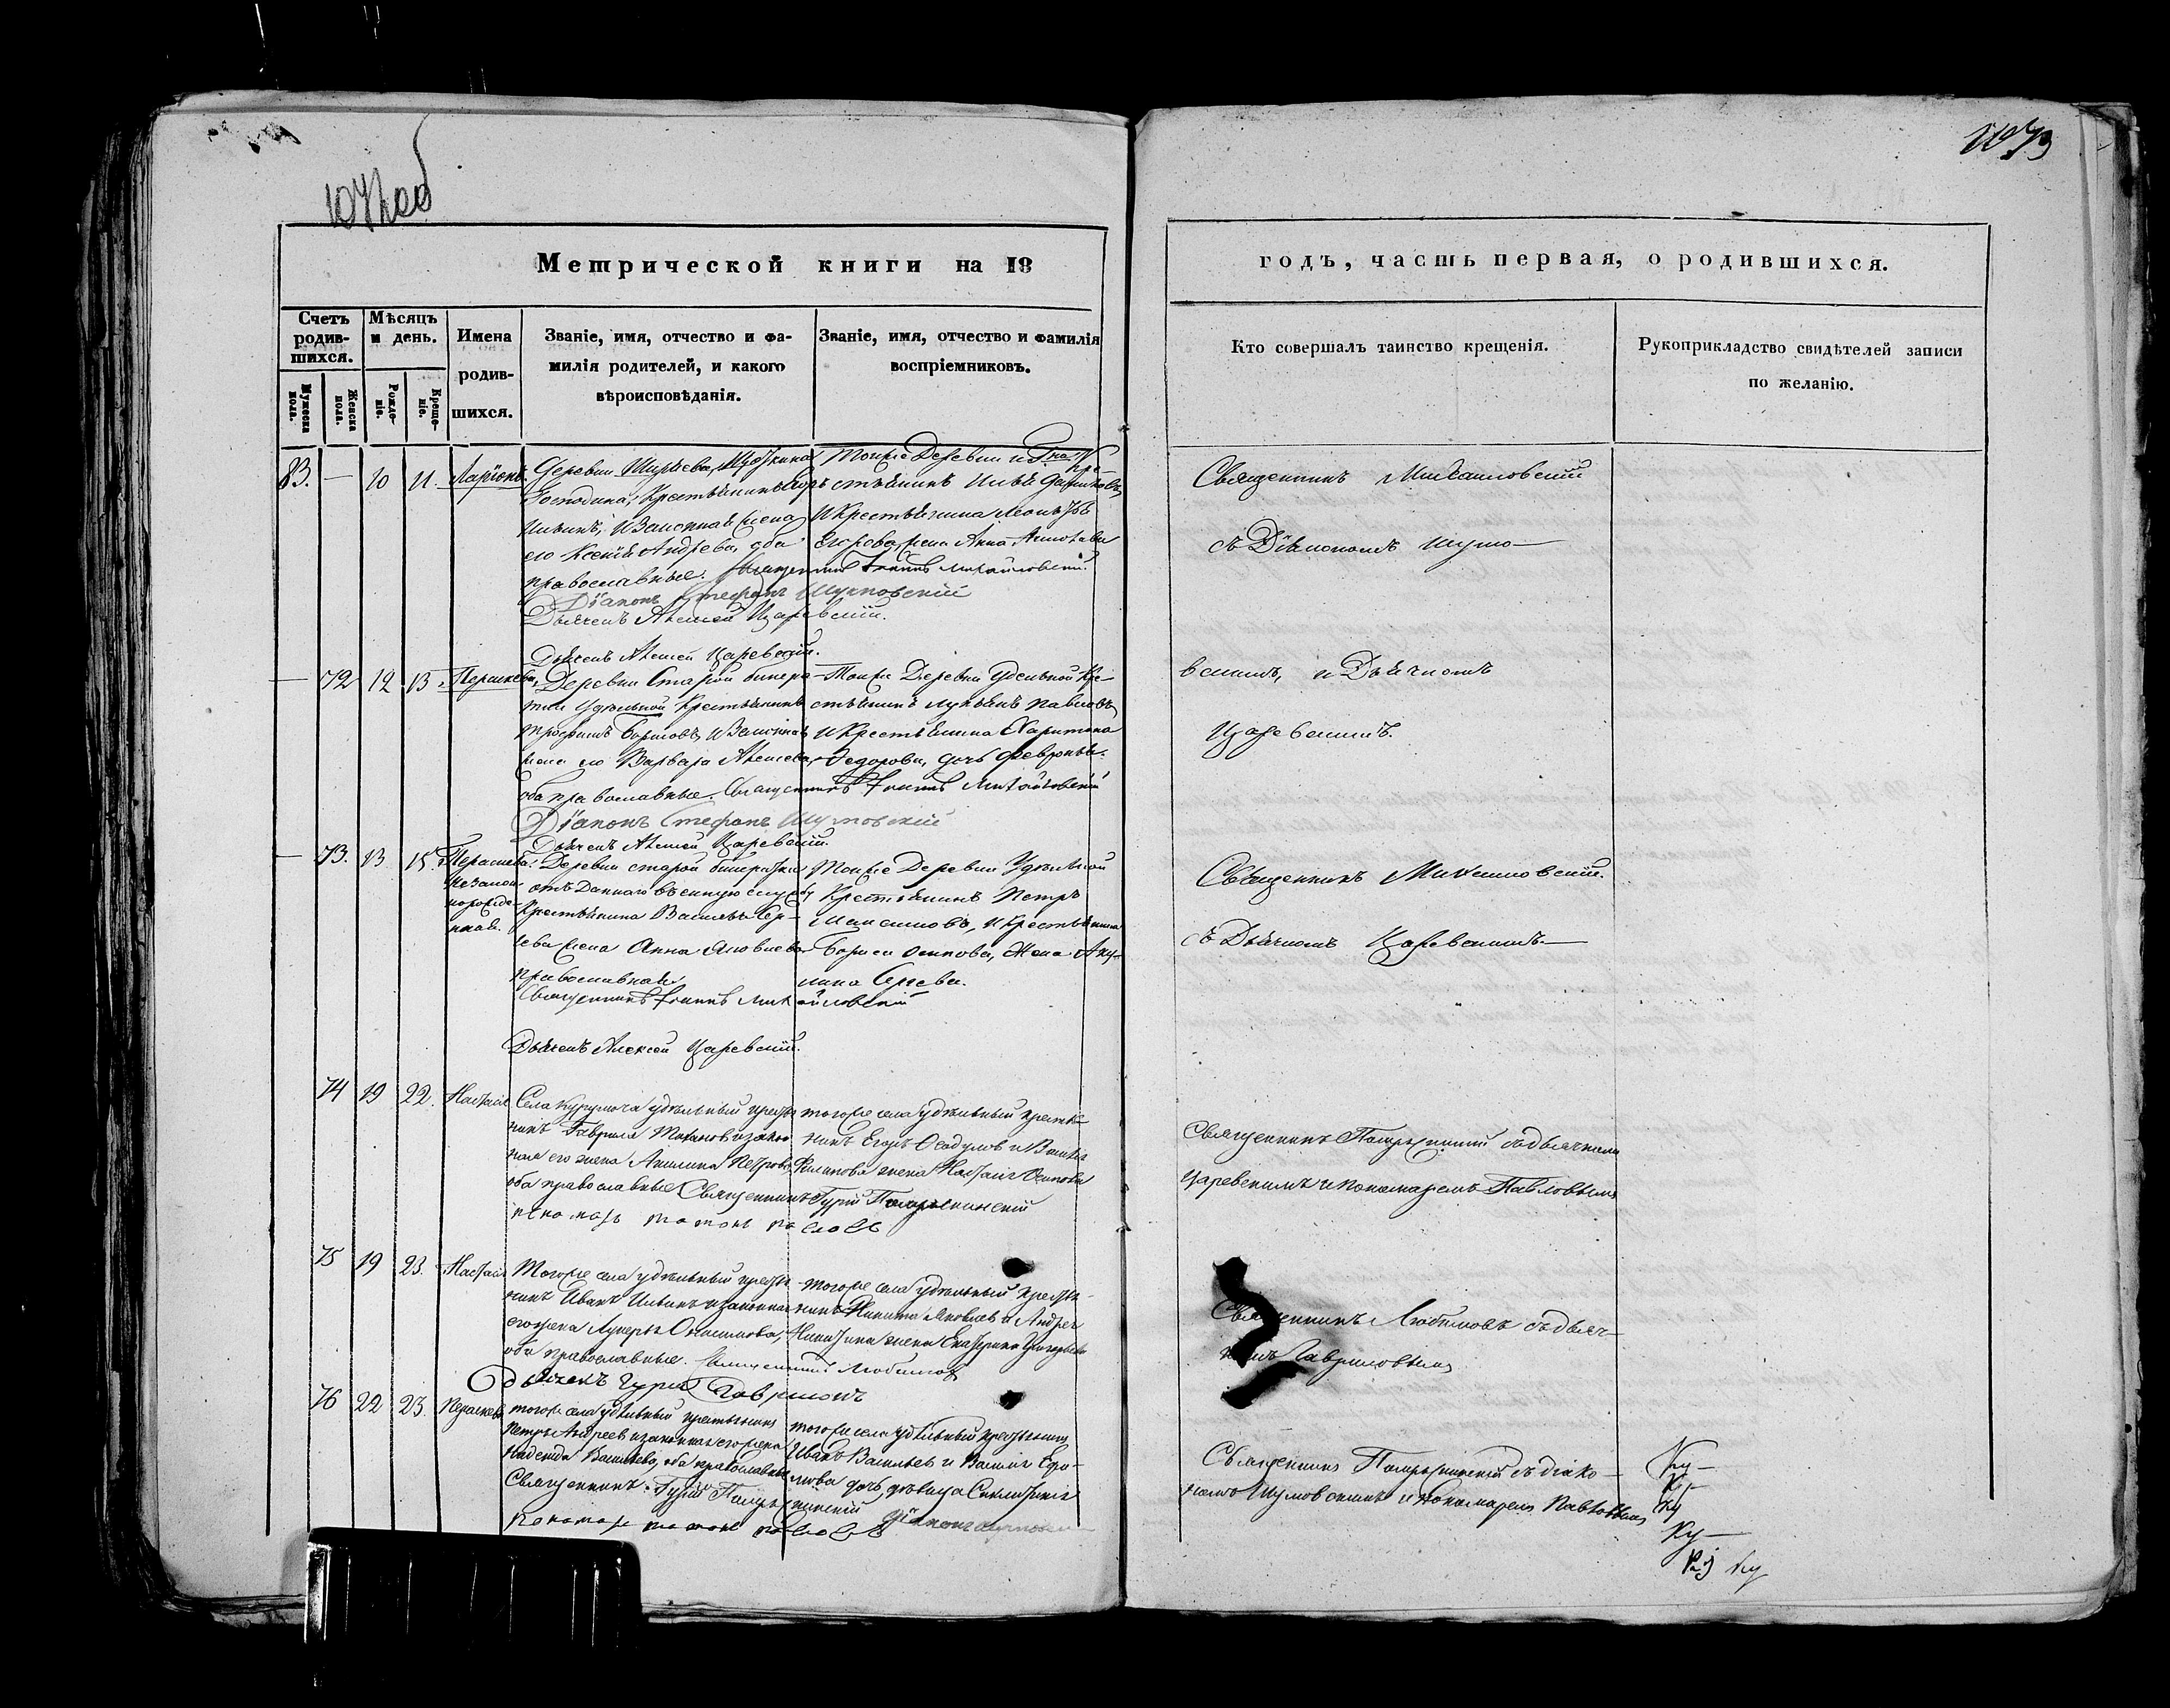 1072об
1073
Метрической книги на 18
годъ, часть первая, о родившихся.
Счетъ родив-шихся.
Мужеска пола.
Женска пола.
Мѣсяцъ и день.
Рожде-ніе.
Креще-ніе.
Имена
родив-
шихся.
Званіе, имя, отчество и фа-
милія родителей, и какого
вѣроисповѣданія.
Званіе, имя, отчество и фамилія
воспріемниковъ.
Кто совершалъ таинство крещенія.
Рукоприкладство свидѣтелей записи
по желанію.
83. — 10 11. Ларіонъ.
Деревни
Господина, Крестьянинъ
Ильинъ, и Законная жена
его Ксенія Андреева, оба
православные. Священникъ Іоаннъ Михайловскій.
Діаконъ Стефанъ Шумовскій
Дьячекъ Алексей Царевскій.
Тойже Деревни
стьянинъ Илья
и Крестьянина
Егорова жена Анна
Священникъ Михайловскій
съ Діакономъ Шумо—
вскимъ, и Дьячкомъ
Царевскимъ.
Дьячекъ Алексей Царевскій.
— 72 12 13.
Деревни Старой бинара
тки Удѣльной Крестьянинъ
Трофимъ Борисовъ, и Законная
жена его Варвара Алексеева,
оба православные. Священникъ Іоаннъ Михайловскій
Діаконъ Стефанъ Шумовскій
Дьячекъ Алексей Царевскій.
Тойже Деревни Удельной Кре—
стьянинъ Лукьянъ Павловъ
и Крестьянина Харитона
Федорова, дочь Февронья.
— 73. 13 15.
незакон
норожде-
нная.
Деревни старой бинаратки
отъ Даннаго въ военную службу
Крестьянина Василья Сер-
гева жена Анна Яковлева
православная.
Священникъ Іоаннъ Михайловскій
Дьячекъ Алексей Царевскій.
Тойже Деревни Удельной
Крестьянинъ Петръ
Максимовъ, и Крестьянина
Бориса Осипова, Жена Аку-
лина Сергева.
Священникъ Михайловскій.
съ Дьячкомъ Царевскимъ.—
74 19 22. Настасія
Села Курумоча удѣльный крестья
нинъ Гаврила и закон
ная его жена Акилина Петрова
оба православные Священникъ Гурій
пономарь Павловъ
тогоже села удѣльный крестья
нинъ Егоръ и Василья
Филипова жена Настасія Осипова
Священникъ съ дьячкомъ
Царевскимъ и пономаремъ Павловымъ
75 19 23. Настасія
Тогоже села удѣльный крестья
нинъ Иванъ Ильинъ и законная
его жена Лукерья Онисимова,
оба православные. Священникъ Любимовъ
Дьячекъ Гурій Гавриловъ
тогоже села удѣльный крестья-
нинъ Никита Яковлевъ и Андрея
Никитина жена Екатерина Григорьева
Священникъ Любимовъ съ дьяч—
комъ Гавриловымъ
76 22 23. Параскева
тогоже села удѣльный крестьянинъ
Петръ Андреевъ и законная его жена
Надежда Васильева, оба православные
Священникъ Гурій
Пономарь Павловъ
тогоже села удѣльный крестьянинъ
Иванъ Васильевъ и Василія Ефи-
мова дочь девица
Діаконъ Шумовскій
Священникъ съ діако—
номъ Шумовскимъ и пономаремъ Павловымъ
Ку—
Ку
Ку—
Ку